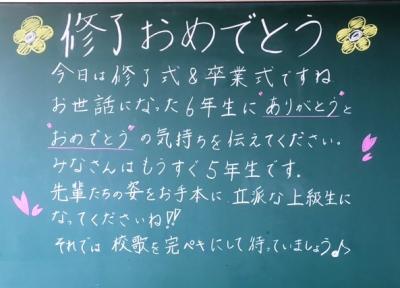 修了おめでとう
今日は修了式&卒業式ですね
お世話になった6年生に"ありがとう"と
"おめでとう"の気持ちを伝えてください。
みなさんはもうすぐ5年生です.
先輩たちの姿をお手本に 立派な上級生に
なってくださいね!!
それでは 校歌を完ペキにして待っていましょう♪